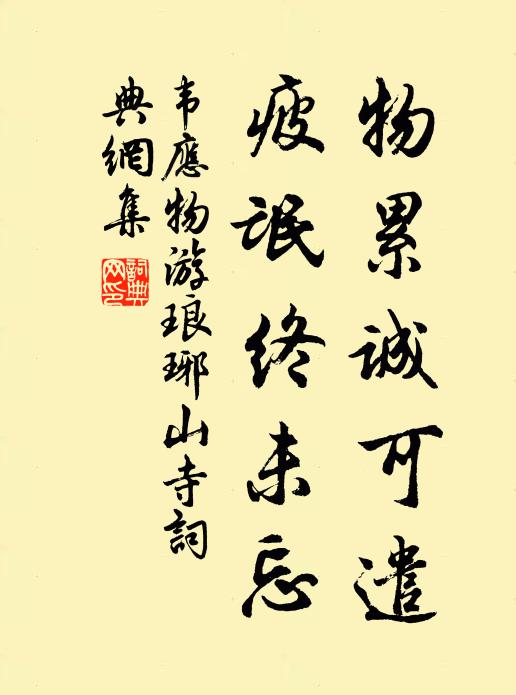 物累誠可遣
疲氓終未忘
韦應物游琅琊山寺詞
典網集
詞典
网印